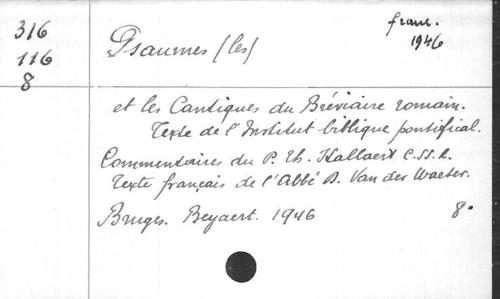 316
116
8
franc.
1946
Psaumes (les)
et les Cantiques du Bréviaire romain.
Texte de l'Institut biblique pontifical.
Commentaires du P. Th. Hallaert C.SS.R.
Texte français de l'Abbé B. Van der Waeter.
Bruges. Beyaert. 1946 8°